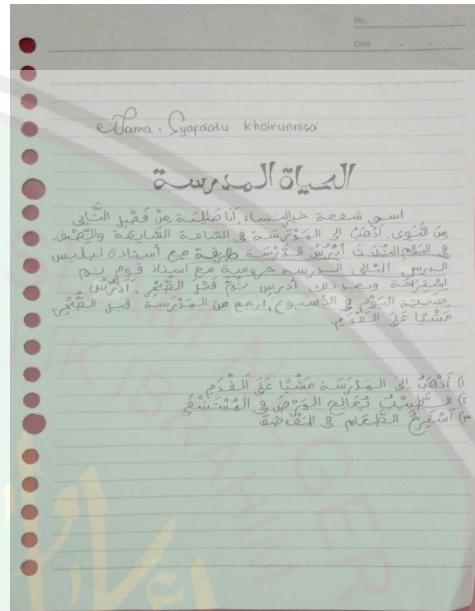 No.
Date
Nama : Syafaatu khoirunnisa'
الحياة المدرسة
اسمي شفعة خيرالنساء. أنا طَالِبَة مِنْ فَصْلِ الثَّانِي
مِنَ الثَّنَوِى. أَذْهَبُ إلى المَدْرَسَة فى السَّاعَة السَّابِعَة وَالنِّصْف.
فى اليَوْم الثُلَاثَ أَدْرُسُ الدَّرْسَة مع أستاذة
الدرس الثانى الدرسه مع استاذ قوم ثم
اسْتِرَاحَة وبعد ذلك أدرس ثمّ الظُّهْر. أَدْرُسُ
اليَوْم فى الأسبوع. أرجع من المَدْرَسَة قبل الظُّهْر
مَشْيًا عَلَى القَدَم.
١) أَذْهَبُ إلىَ المَدْرَسَة مَشْيًا عَلَى القَدَم
٢) الطَّبِيْبُ يُعَالِج المَرْض فى المُسْتَشْفَى
٣) الطَّعَام فى